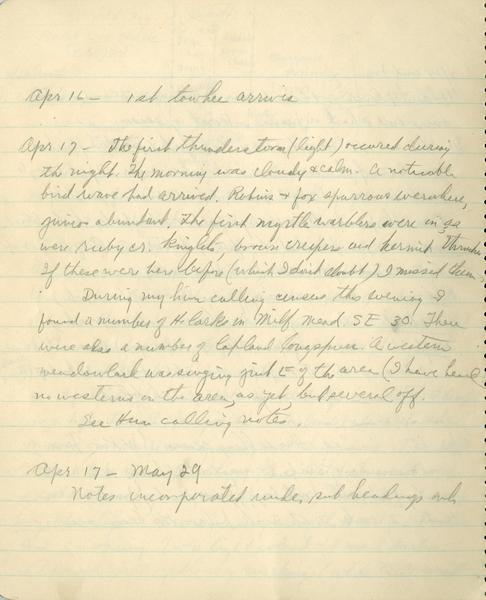 Apr 16 - 1st towhee arrives
Apr 17 - The first thunderstorm (light) occured during
the night. The morning was cloudy & calm. A noticable
bird wave had arrived. Robins & fox sparrows everwhere,
juncos abundant. The first myrtle warblers were in, as
were ruby cr. kinglets, brown creepers and hermit thrushes
If these were here before (which I don't doubt) I missed them.
During my Hun calling census this evening I
found a number of H larks in Milf Mead. SE 30. There
were also a number of Lapland longspurs. A western
meadowlark was singing just E of the area (I have heard
no westerns on the area, as yet, but several off.
See Hun calling notes.
Apr 17 - May 29
Notes incorporated under sub headings only